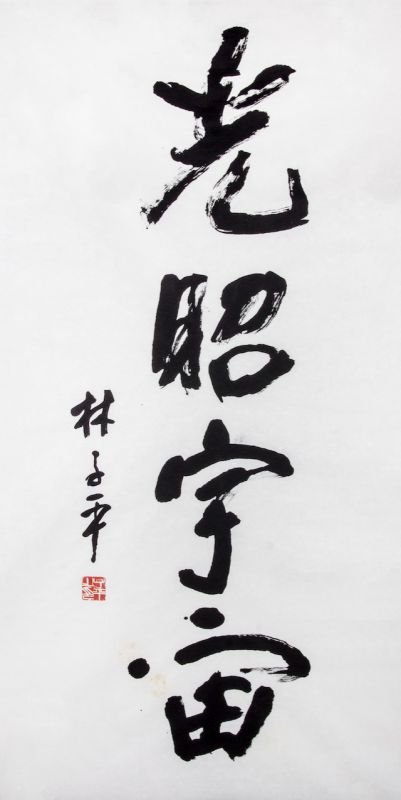 光昭宇宙
林子平